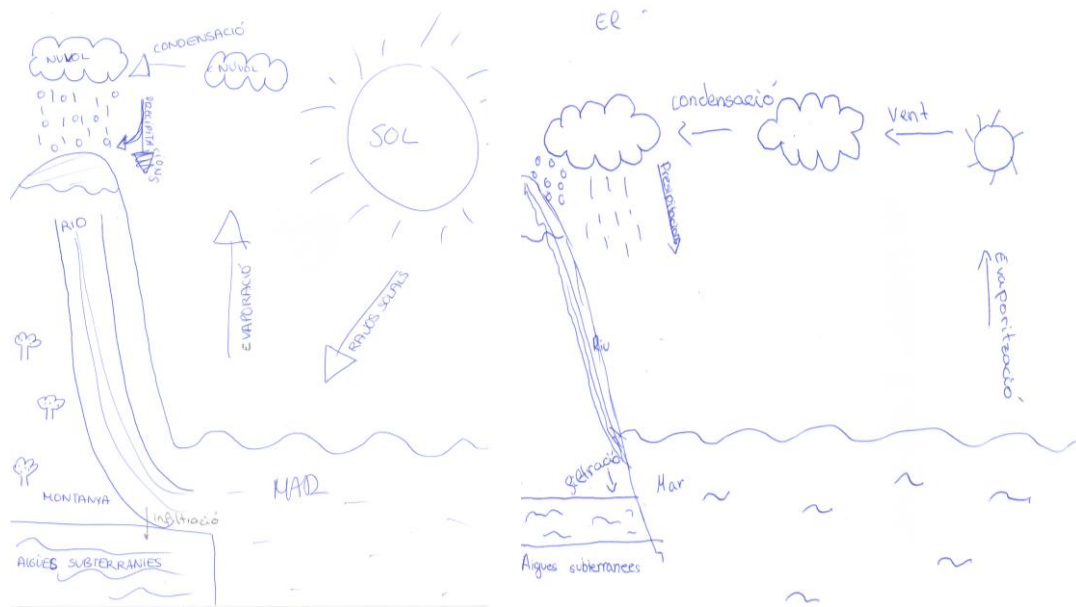 NUVOL
CONDENSACIÓ
NUVOL
PRECIPITACIONS
SOL
RIO
EVAPORACIÓ
RAJOS SOLARS
MAR
MONTANYA
infiltració
AIGÜES SUBTERRANIES
El
condensació
Vent
Precipitacions
Evaporització
Riu
Mar
Aigues subterranees